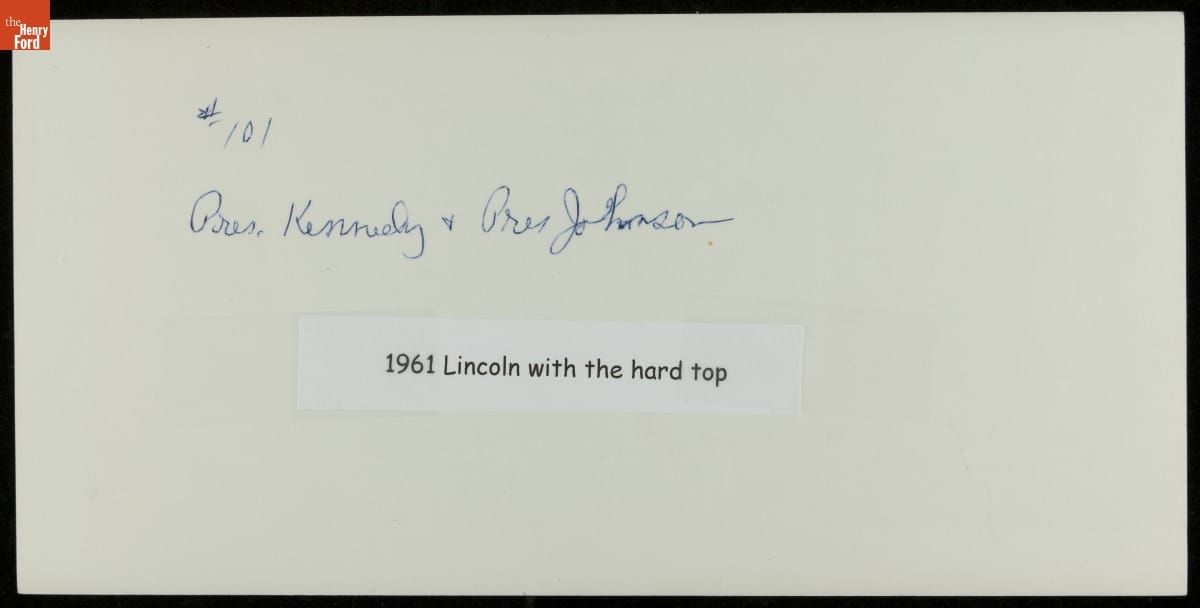 the
Henry
Ford
#101
Pres. Kennedy + Pres Johnson
1961 Lincoln with the hard top